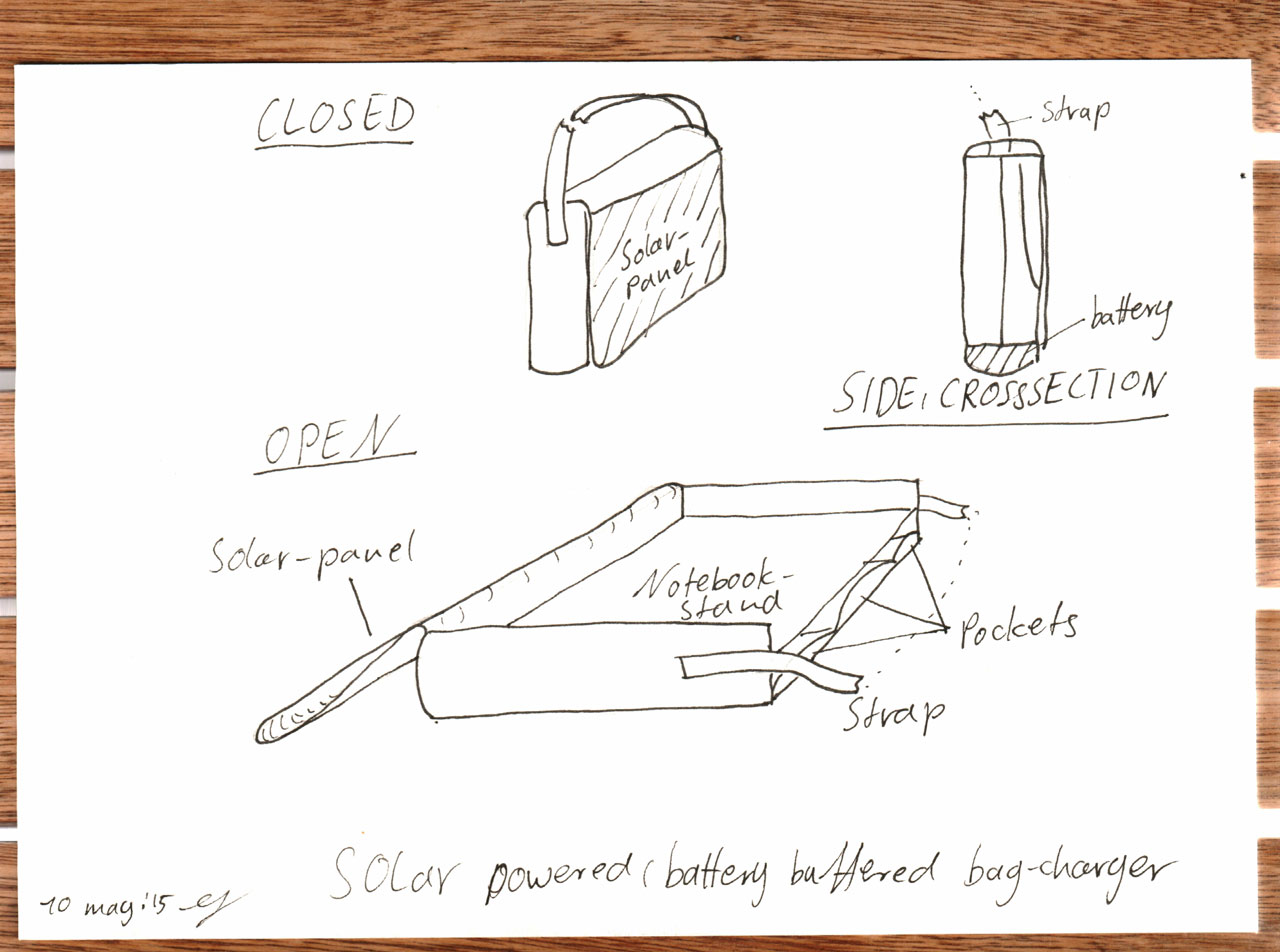 CLOSED
strap
Solar-
panel
battery
SIDE, CROSSSECTION
OPEN
Solar-panel
Notebook-
stand
Pockets
Strap
Solar powered, battery buffered bag-charger
10 mag:'15